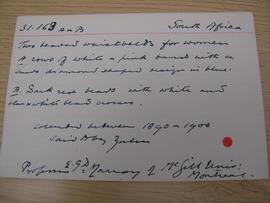 31.163 A & B South Africa.
Two beaded waistbelts for women
A rows of white & pink bands with a
diamond shaped design in blue.
B Dark red beads with white and
blue & white bead crosses.
Collected between 1890 & 1900
Said to by Zulus
Professor E.G.D. Murray of McGill Univ:
Montreal.